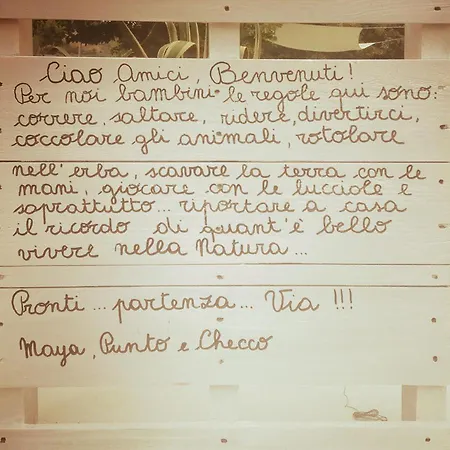 Ciao Amici, Benvenuti!
Per noi bambini le regole qui sono:
correre, saltare, ridere, divertirci,
coccolare gli animali, rotolare
nell'erba, scavare la terra con le
mani, giocare con le lucciole e
soprattutto... riportare a casa
il ricordo di quant'è bello
vivere nella Natura...
Pronti... partenza... Via !!!
Maya, Punto e Checco